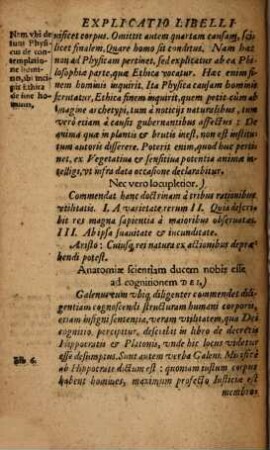 EXPLICATIO LIBELLI
Nam vbi de-
sinit Physi-
cus de con-
templatio-
ne homi-
nis, ibi inci-
pit Ethica
de fine ho-
minum.
ficet corpus. Omittit autem quartam causam, sci-
licet finalem, Quare homo sit conditus. Nam hæc
non ad Physicam pertinet, sed explicatur ab ea Phi-
losophiæ parte, quæ Ethica vocatur. Hæc enim fi-
nem hominis inquirit. Ita Physica causam hominis
scrutatur, Ethica finem inquirit, quem petit cùm ab
imagine archetypi, tum à noticijs naturalibus, tum
verò etiam à causis gubernantibus affectus: De
anima quæ in plantis & brutis inest, non est institu-
tum autoris disserere. Poterit enim, quod huc perti-
net, ex Vegetatiua & sensitiua potentia animæ in-
telligi, vt infra data occasione declarabitur.
Nec vero locupletior.)
Commendat hanc doctrinam à tribus rationibus
vtilitatis. I. A varietate rerum II. Quia describi-
bit res magna sapientia à maioribus obseruatas.
III. Ab ipsa suauitate & iucunditate.
Aristo: Cuiusq; res natura ex actionibus depræ-
hendi potest.
Anatomiæ scientiam ducem nobis esse
ad cognitionem DEI,)
Galenus vbiq; diligenter commendet dili-
gentiam cognoscendi structuram humani corporis,
etiam insigni sententia, veram vtilitatem, qua Dei
cognitio percipitur, describit in libro de decretis
Hippocratis & Platonis, vnde hic locus videtur
esse desumptus. Sunt autem verba Galeni
lib 6.
ab Hippocrate dictum est: quoniam iustum corpus
habent homines, maximum profectò Iusticia est
membro